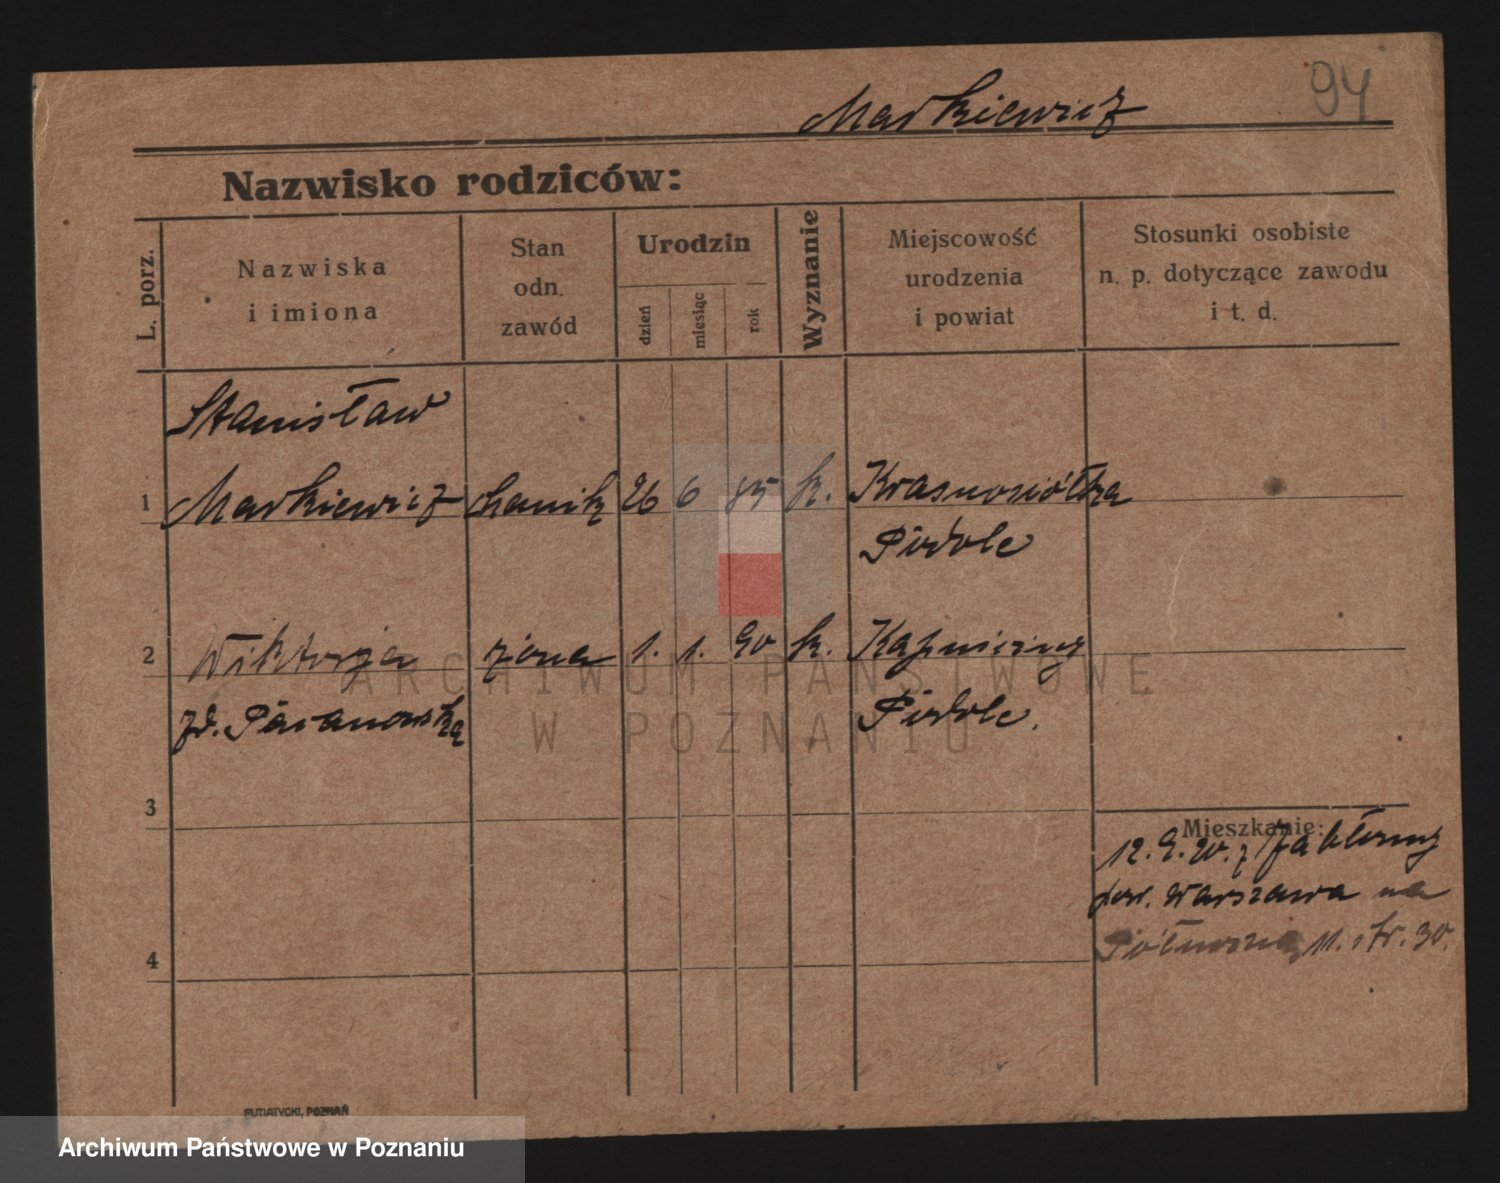 94
Markiewicz
Nazwisko rodziców:
L. porz.
Nazwiska
i imiona
Stan
odn.
zawód
Urodzin
dzień
miesiąc
rok
Wyznanie
Miejscowość
urodzenia
i powiat
Stosunki osobiste
n. p. dotyczące zawodu
i t. d.
Stanisław
1 Markiewicz 26 6 85 k. Krasnosiółka
Podole
2 Wiktorja żona 1. 1. 90 k.
zd.
Podole.
3
Mieszkanie:
12.9.20. z Jabłonny
pow. Warszawa na
11. str. 30.
4
PUTIATYCKI, POZNAŃ
ARCHIWUM PAŃSTWOWE
W POZNANIU
Archiwum Państwowe w Poznaniu